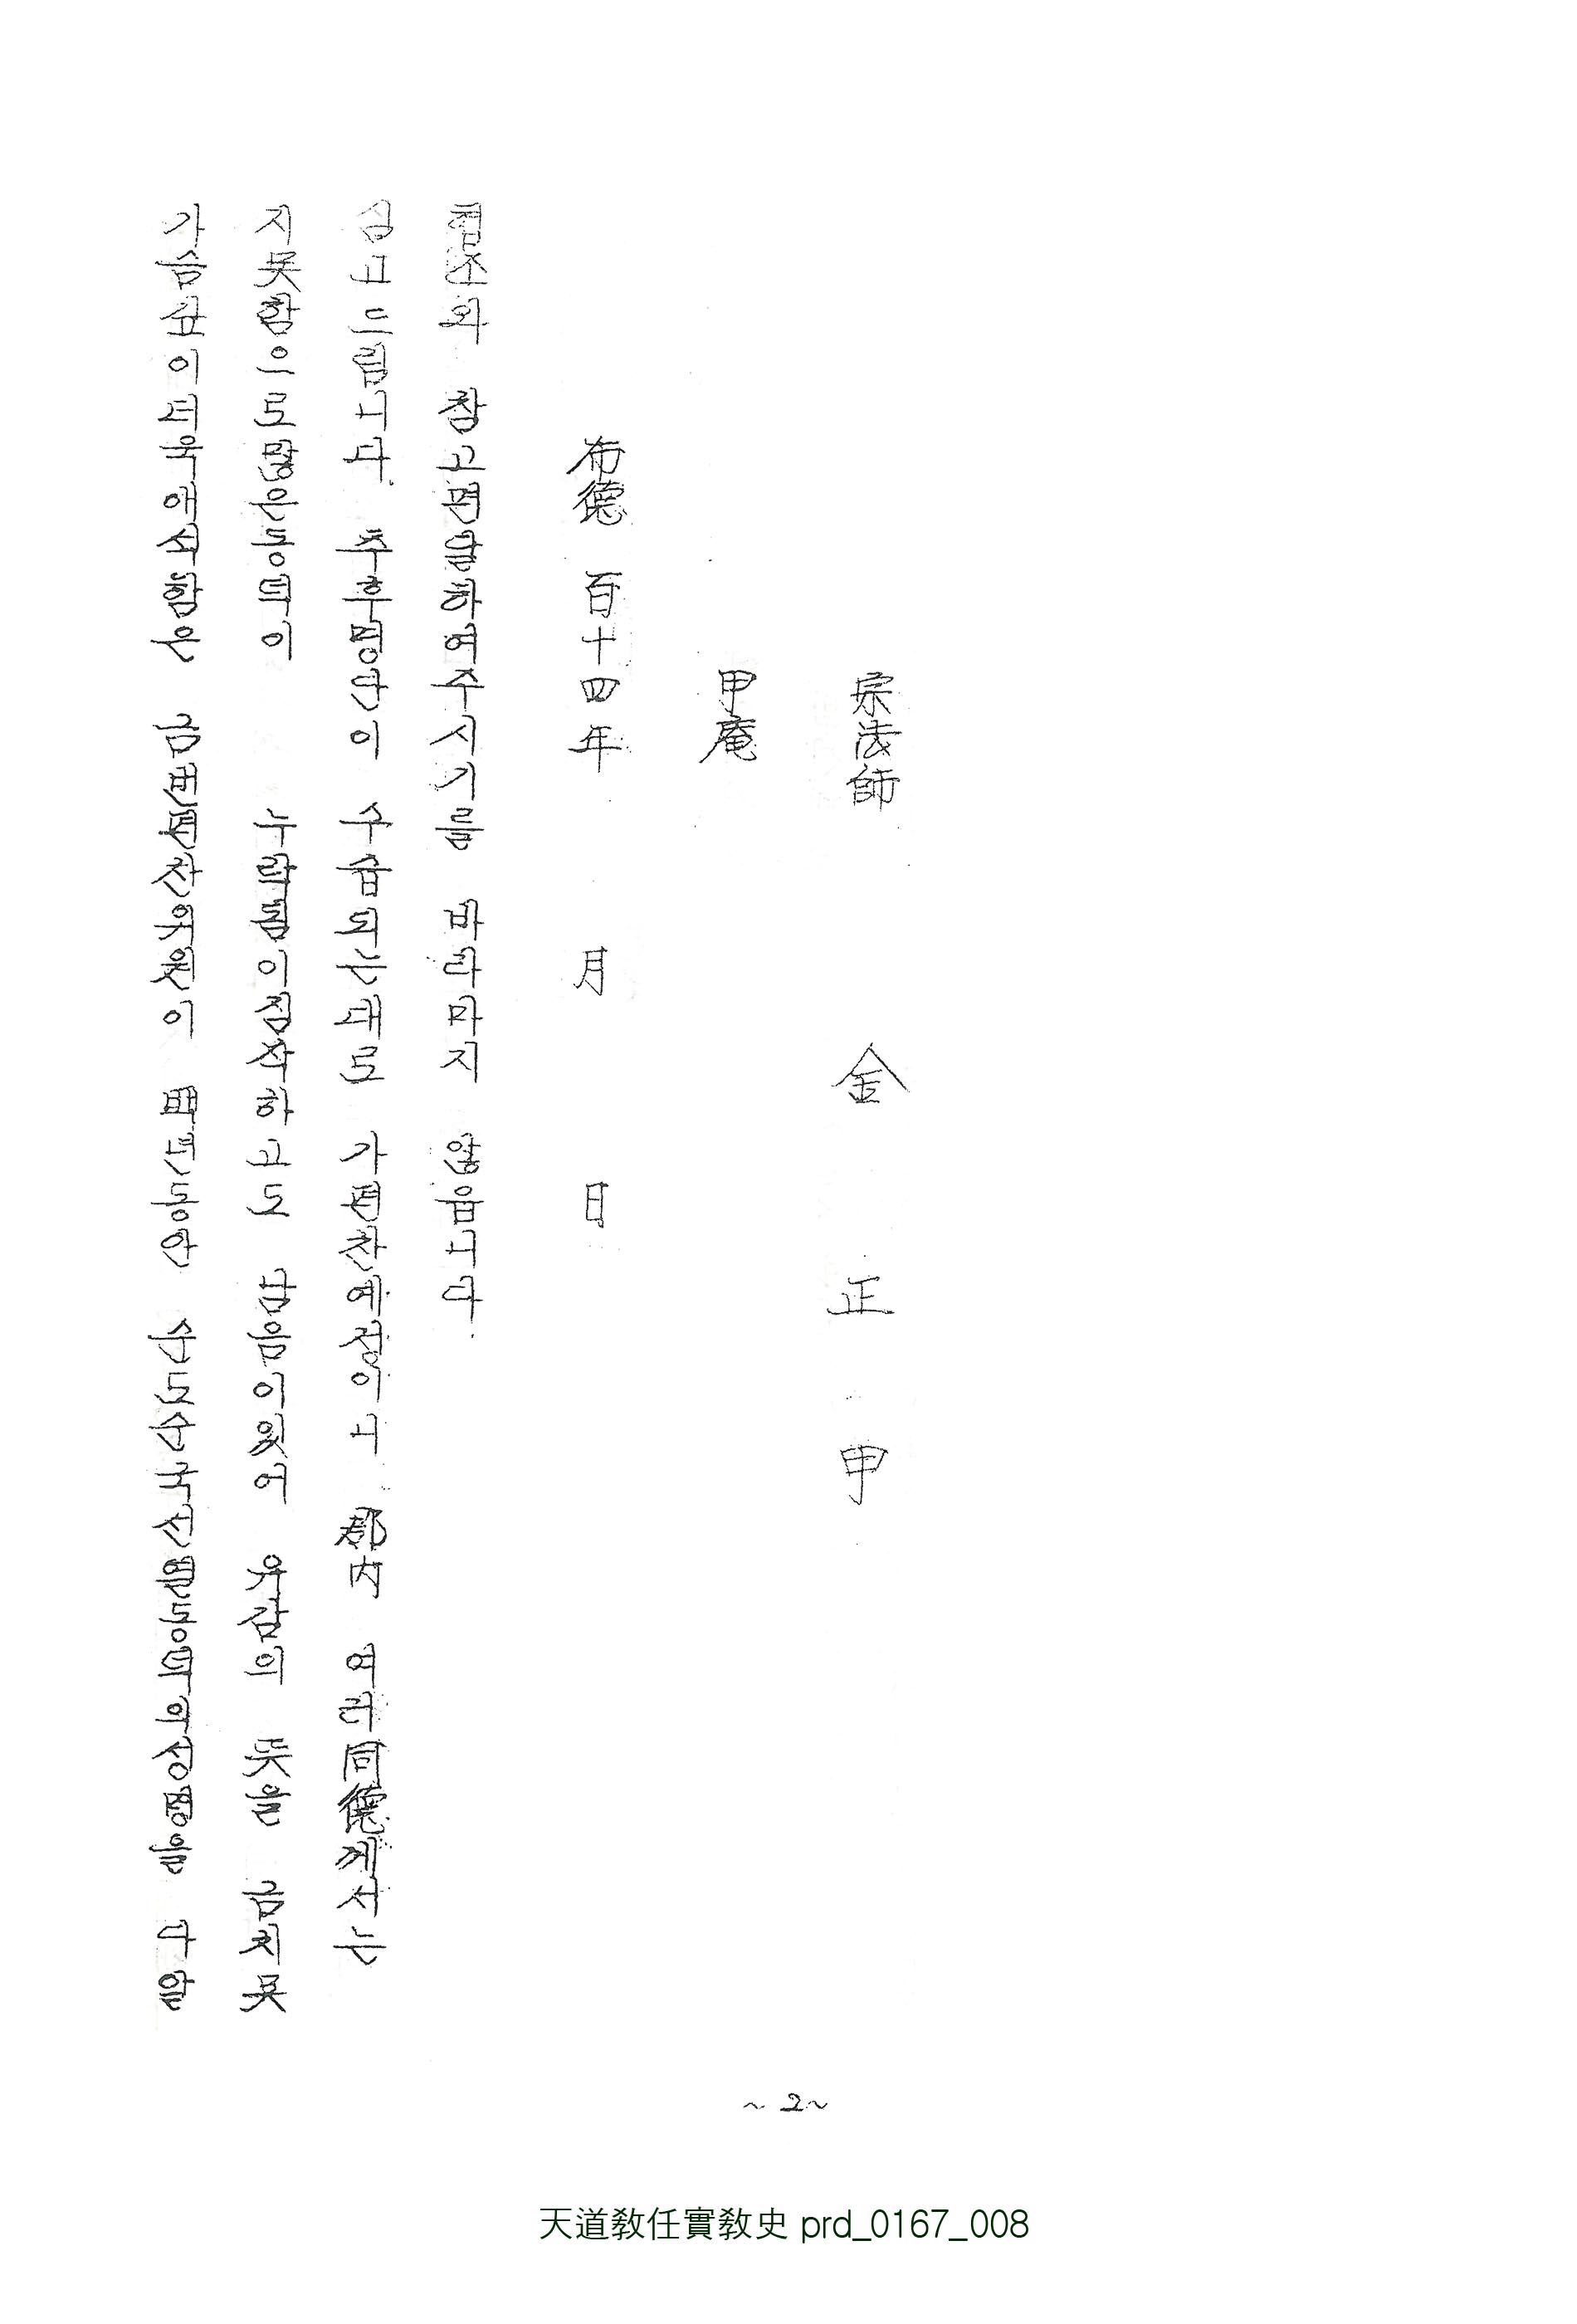 가슴깊이더욱애석함은 금번편찬위원이 백년동안 순도순국선열동덕의성명을 다알
지못함으로많은동덕이 누락됨이짐작하고도 남음이있어 유감의 뜻을 금치못
심고드립니다. 추후명단이 수습되는대로 가편찬예정이니 郡內 여러同德께서는
협조와 참고편달하여주시기를 바라마지 않읍니다.
布德 百十四年 月 日
甲庵
宗法師 金正甲
~2~
天道敎任實敎史 prd_0167_008